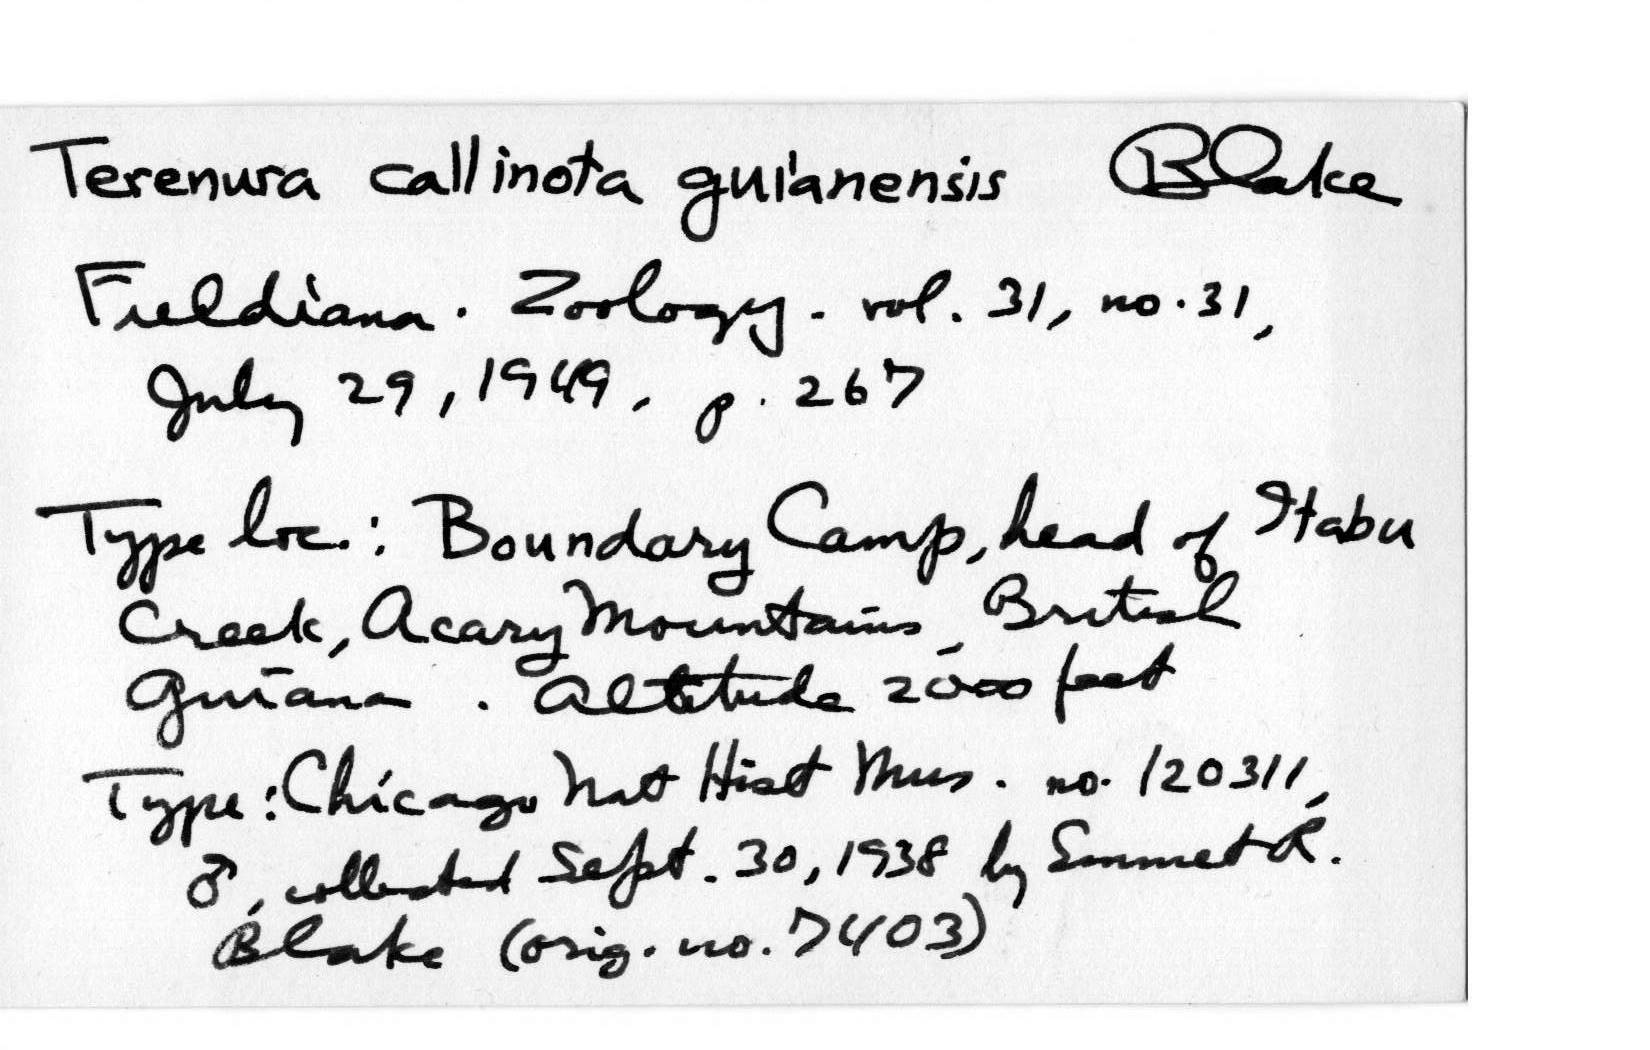 Terenura callinota guianensis Blake
Fieldiana. Zoology. vol. 31, no. 31,
July 29, 1949, p. 267
Type loc.: Boundary Camp, head of Itabu
Creek, Acary Mountains, British
Guiana. Altitude 2000 feet
Type: Chicago Nat Hist Mus. no. 120311,
♂, collected Sept. 30, 1938 by Emmet R.
Blake (orig. no. 7403)